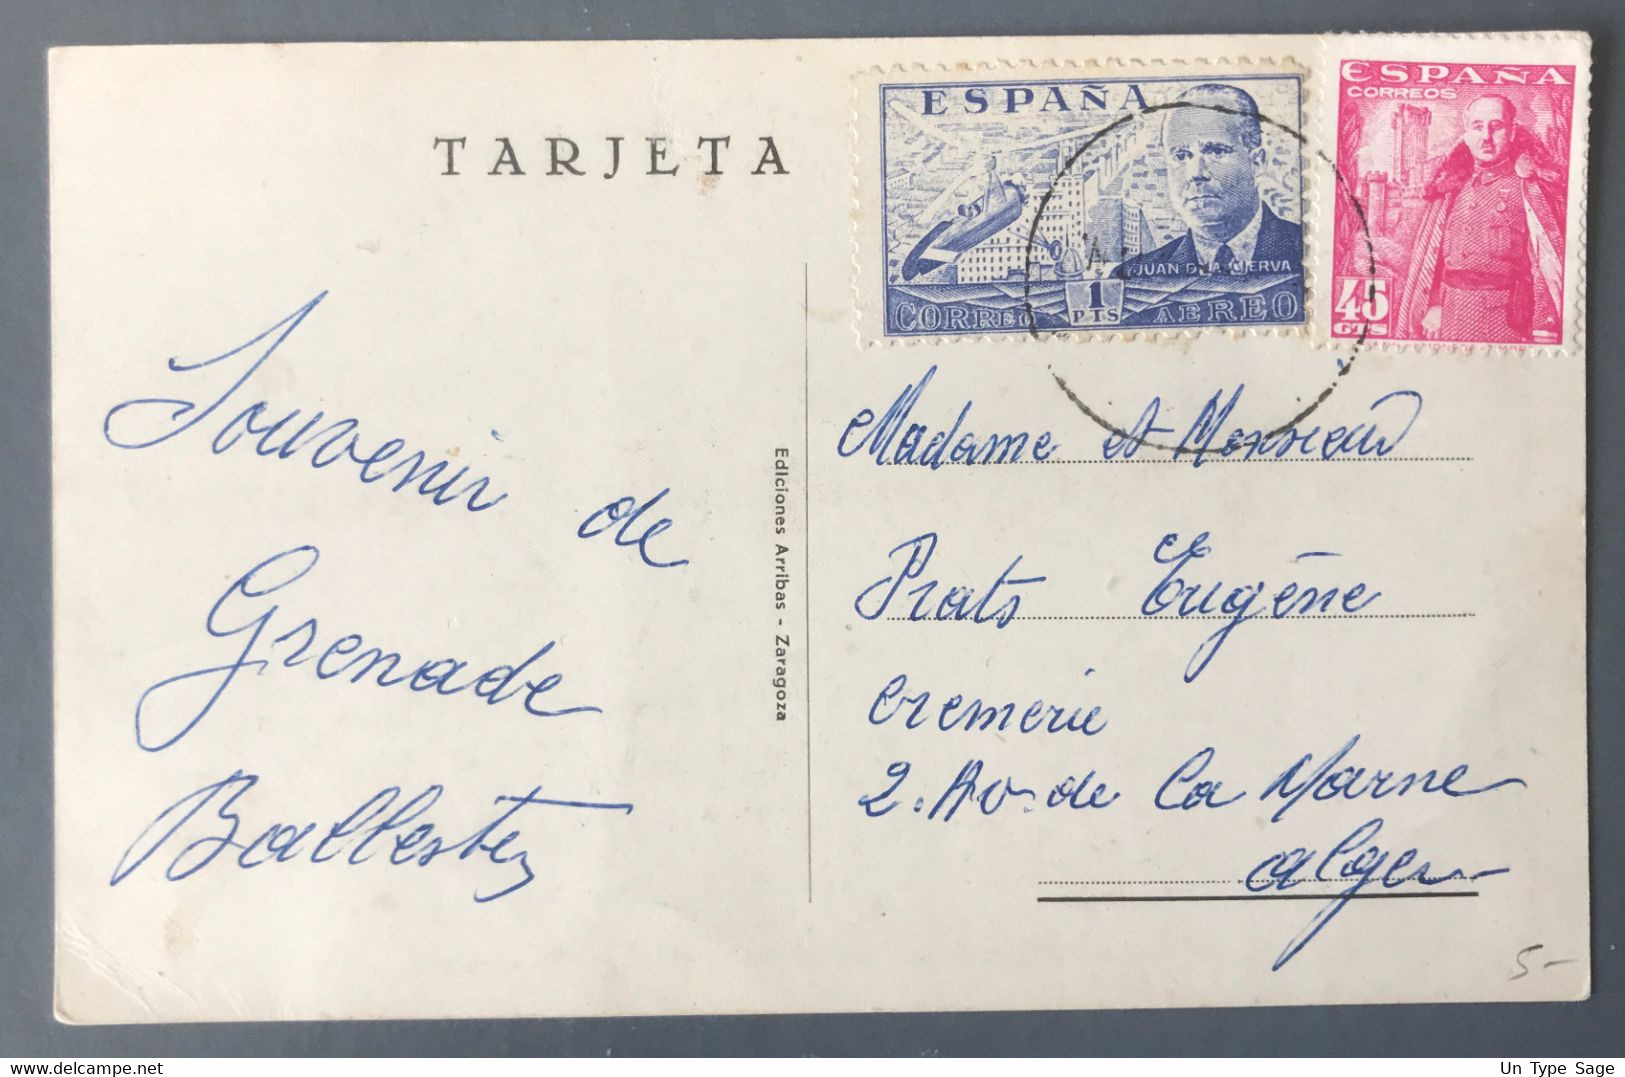 TARJETA
ESPAÑA
JUAN D LA CIERVA
1
PTS
CORREO AEREO
ESPAÑA
CORREOS
45
CTS
Souvenir de
Grenade
Ballester
Ediciones Arribas - Zaragoza
Madame et Monsieur
Prats Eugène
cremerie
2. Av. de la Marne
alger
5-
Un Type Sage